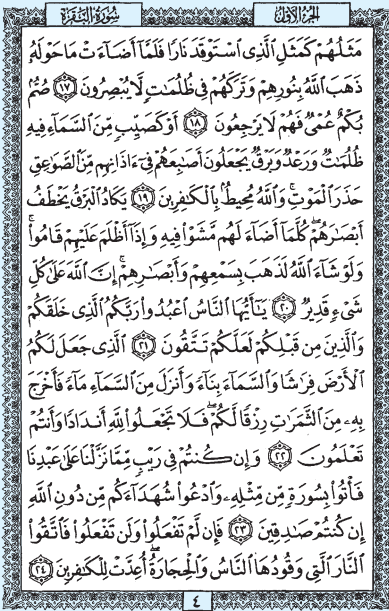 سُورَةُ البَقَرَةِ الجُزْءُ الأَوَّلُ
مَثَلُهُمْ كَمَثَلِ ٱلَّذِي ٱسْتَوْقَدَ نَارًا فَلَمَّآ أَضَآءَتْ مَا حَوْلَهُۥ
ذَهَبَ ٱللَّهُ بِنُورِهِمْ وَتَرَكَهُمْ فِي ظُلُمَٰتٍ لَّا يُبْصِرُونَ ١٧ صُمُّۢ
بُكْمٌ عُمْيٌ فَهُمْ لَا يَرْجِعُونَ ١٨ أَوْ كَصَيِّبٍ مِّنَ ٱلسَّمَآءِ فِيهِ
ظُلُمَٰتٌ وَرَعْدٌ وَبَرْقٌ يَجْعَلُونَ أَصَٰبِعَهُمْ فِيٓ ءَاذَانِهِم مِّنَ ٱلصَّوَٰعِقِ
حَذَرَ ٱلْمَوْتِ ۚ وَٱللَّهُ مُحِيطٌۢ بِٱلْكَٰفِرِينَ ١٩ يَكَادُ ٱلْبَرْقُ يَخْطَفُ
أَبْصَٰرَهُمْ ۖ كُلَّمَآ أَضَآءَ لَهُم مَّشَوْا۟ فِيهِ وَإِذَآ أَظْلَمَ عَلَيْهِمْ قَامُوا۟ ۚ
وَلَوْ شَآءَ ٱللَّهُ لَذَهَبَ بِسَمْعِهِمْ وَأَبْصَٰرِهِمْ ۚ إِنَّ ٱللَّهَ عَلَىٰ كُلِّ
شَيْءٍ قَدِيرٌ ٢٠ يَٰٓأَيُّهَا ٱلنَّاسُ ٱعْبُدُوا۟ رَبَّكُمُ ٱلَّذِي خَلَقَكُمْ
وَٱلَّذِينَ مِن قَبْلِكُمْ لَعَلَّكُمْ تَتَّقُونَ ٢١ ٱلَّذِي جَعَلَ لَكُمُ
ٱلْأَرْضَ فِرَٰشًا وَٱلسَّمَآءَ بِنَآءً وَأَنزَلَ مِنَ ٱلسَّمَآءِ مَآءً فَأَخْرَجَ
بِهِۦ مِنَ ٱلثَّمَرَٰتِ رِزْقًا لَّكُمْ ۖ فَلَا تَجْعَلُوا۟ لِلَّهِ أَندَادًا وَأَنتُمْ
تَعْلَمُونَ ٢٢ وَإِن كُنتُمْ فِي رَيْبٍ مِّمَّا نَزَّلْنَا عَلَىٰ عَبْدِنَا
فَأْتُوا۟ بِسُورَةٍ مِّن مِّثْلِهِۦ وَٱدْعُوا۟ شُهَدَآءَكُم مِّن دُونِ ٱللَّهِ
إِن كُنتُمْ صَٰدِقِينَ ٢٣ فَإِن لَّمْ تَفْعَلُوا۟ وَلَن تَفْعَلُوا۟ فَٱتَّقُوا۟
ٱلنَّارَ ٱلَّتِي وَقُودُهَا ٱلنَّاسُ وَٱلْحِجَارَةُ ۖ أُعِدَّتْ لِلْكَٰفِرِينَ ٢٤
٤